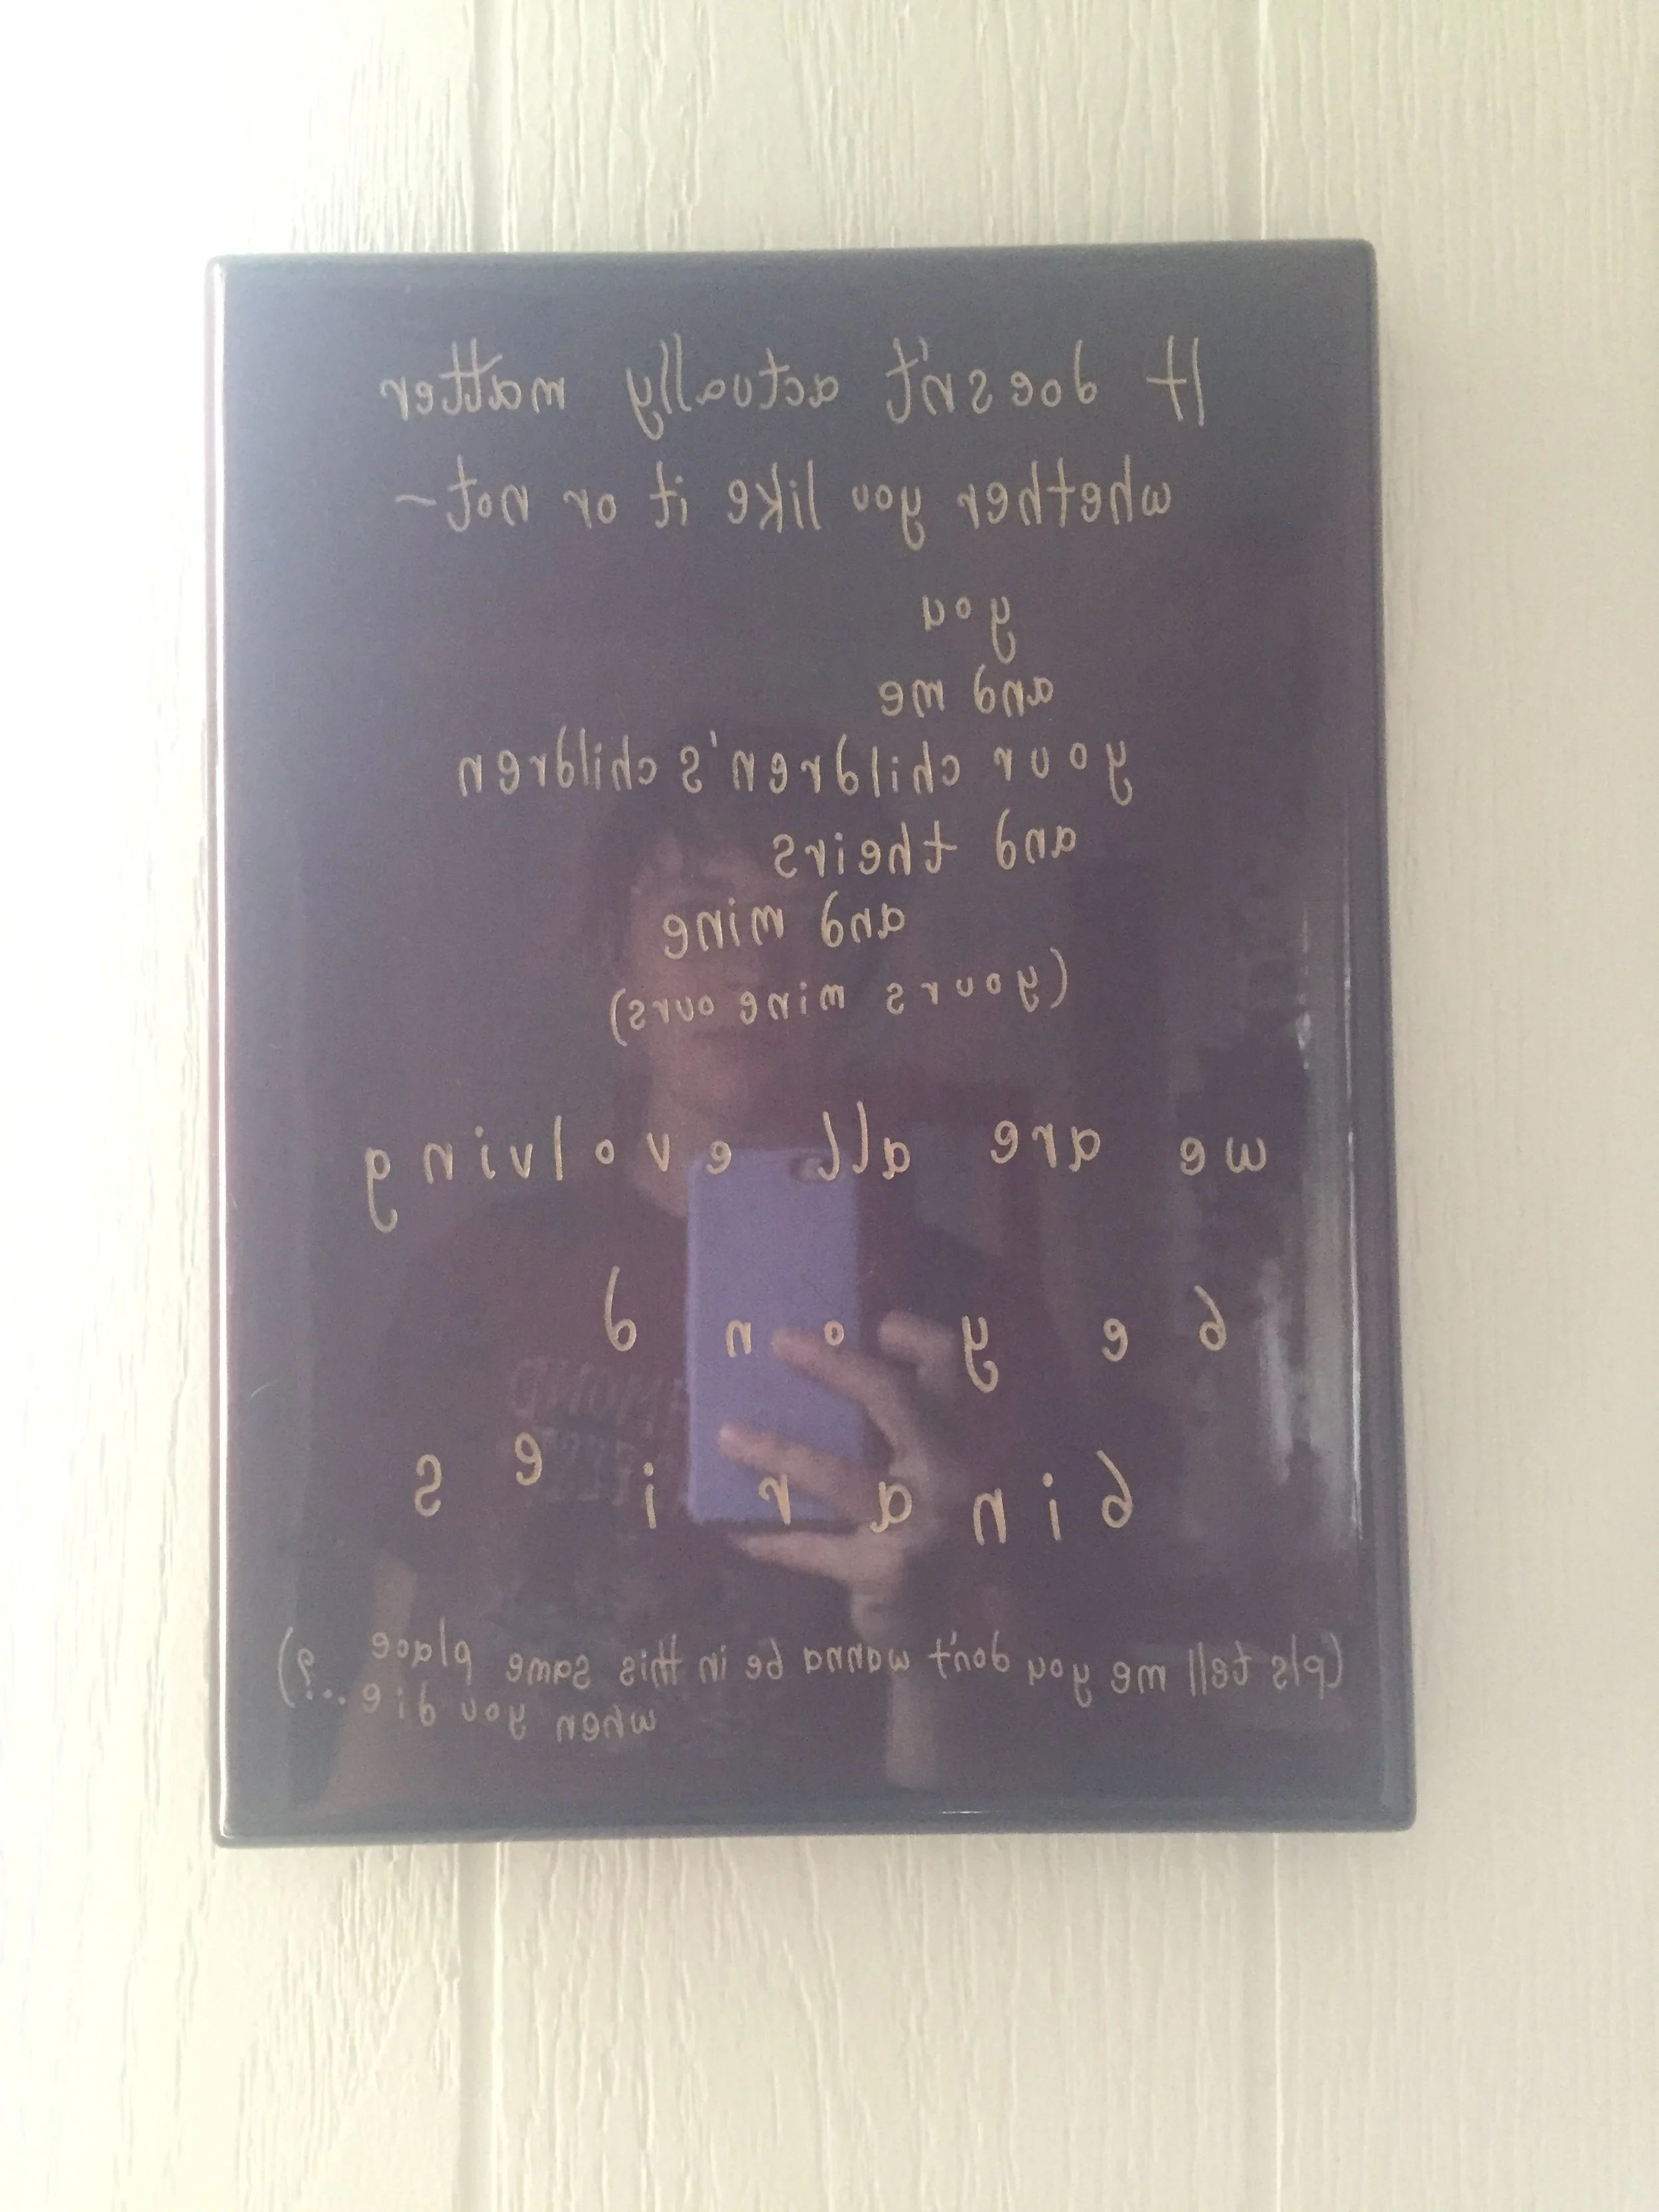 It doesn't actually matter
whether you like it or not~
you
and me
your children's children
and theirs
and mine
(yours mine ours)
we are all evolving
beyond
binaries
(pls tell me you don't wanna be in this same place
when you die...?)